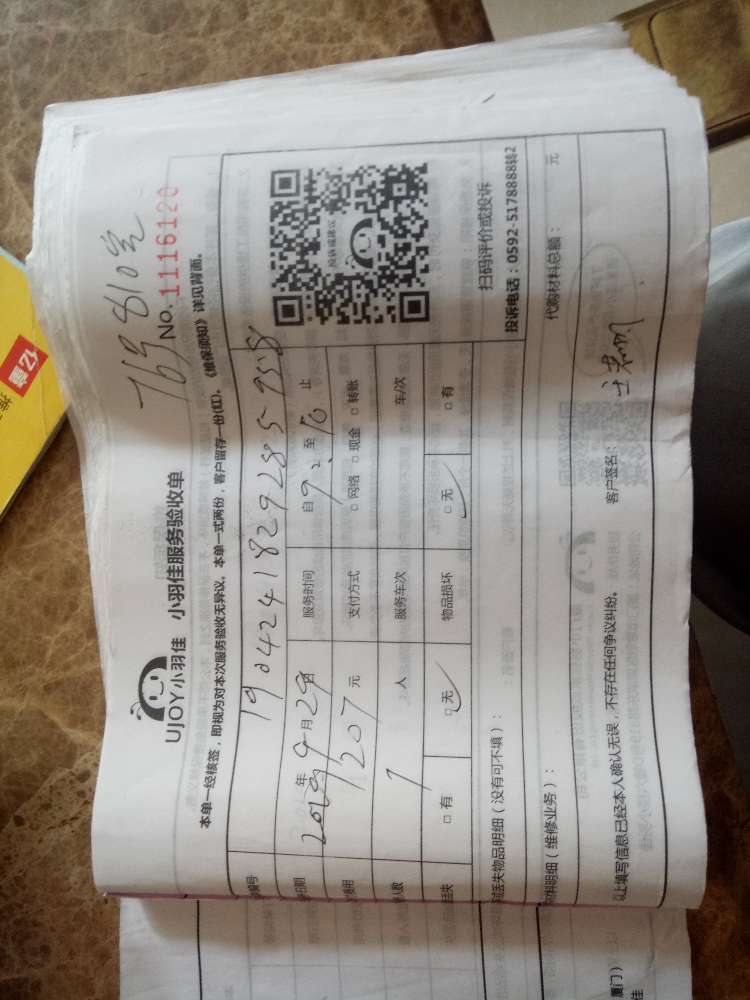 76号810室
No. 1116120
UJOY小羽佳 小羽佳服务验收单
本单一经核签，即视为对本次服务验收无异议。本单一式两份，客户留存一份(红)。《维保须知》详见背面。
编号 19042418292859558
日期 2019年9月29日 服务时间 自9、至16止
费用 207元 支付方式 □网络 □现金 □转账
人数 1人 服务车次 车/次
丢失 □有 □无 物品损坏 □无 □有
投诉或建议
扫码评价或投诉
投诉电话：0592-5178888转2
丢失物品明细（没有可不填）：
材料明细（维修业务）： 代购材料总额： 元
以上填写信息已经本人确认无误，不存在任何争议纠纷。 客户签名：
厦门）
佳
亿